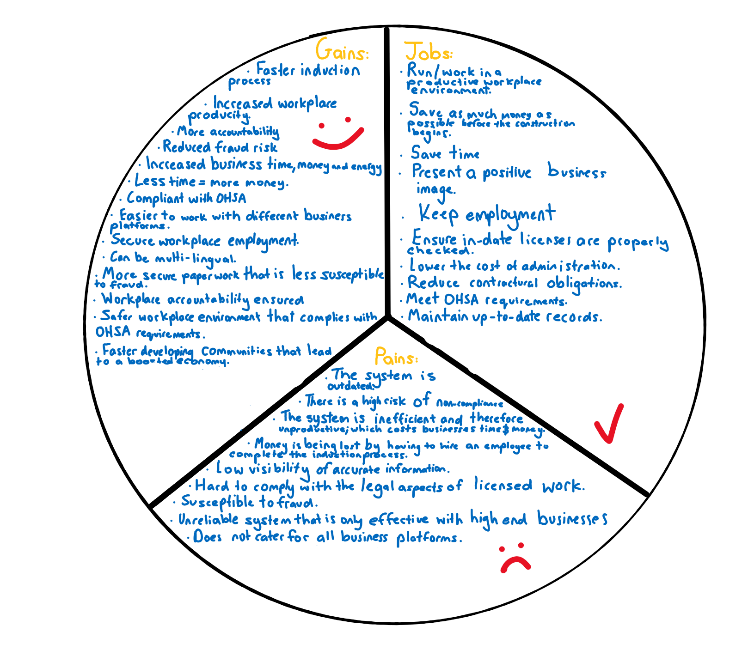 Gains:
· Faster induction
process
· Increased workplace
producity.
· More accountability
· Reduced fraud risk
· Increased business time, money and energy
· Less time = more money.
· Compliant with OHSA
· Easier to work with different business
platforms.
· Secure workplace employment.
· Can be multi-lingual.
· More secure paperwork that is less susceptible
to fraud.
· Workplace accountability ensured
· Safer workplace environment that complies with
OHSA requirements.
· Faster developing communities that lead
to a boosted economy.
Jobs:
· Run/work in a
productive workplace
environment.
· Save as much money as
possible before the construction
begins.
· Save time
· Present a positive business
image.
· Keep employment
· Ensure in-date licenses are properly
checked.
· Lower the cost of administration.
· Reduce contractural obligations.
· Meet OHSA requirements.
· Maintain up-to-date records.
Pains:
· The system is
outdated.
· There is a high risk of non-compliance
· The system is inefficient and therefore
unproductive, which costs businesses time & money.
· Money is being lost by having to hire an employee to
complete the induction process.
· Low visibility of accurate information.
· Hard to comply with the legal aspects of licensed work.
· Susceptible to fraud.
· Unreliable system that is only effective with high end businesses
· Does not cater for all business platforms.